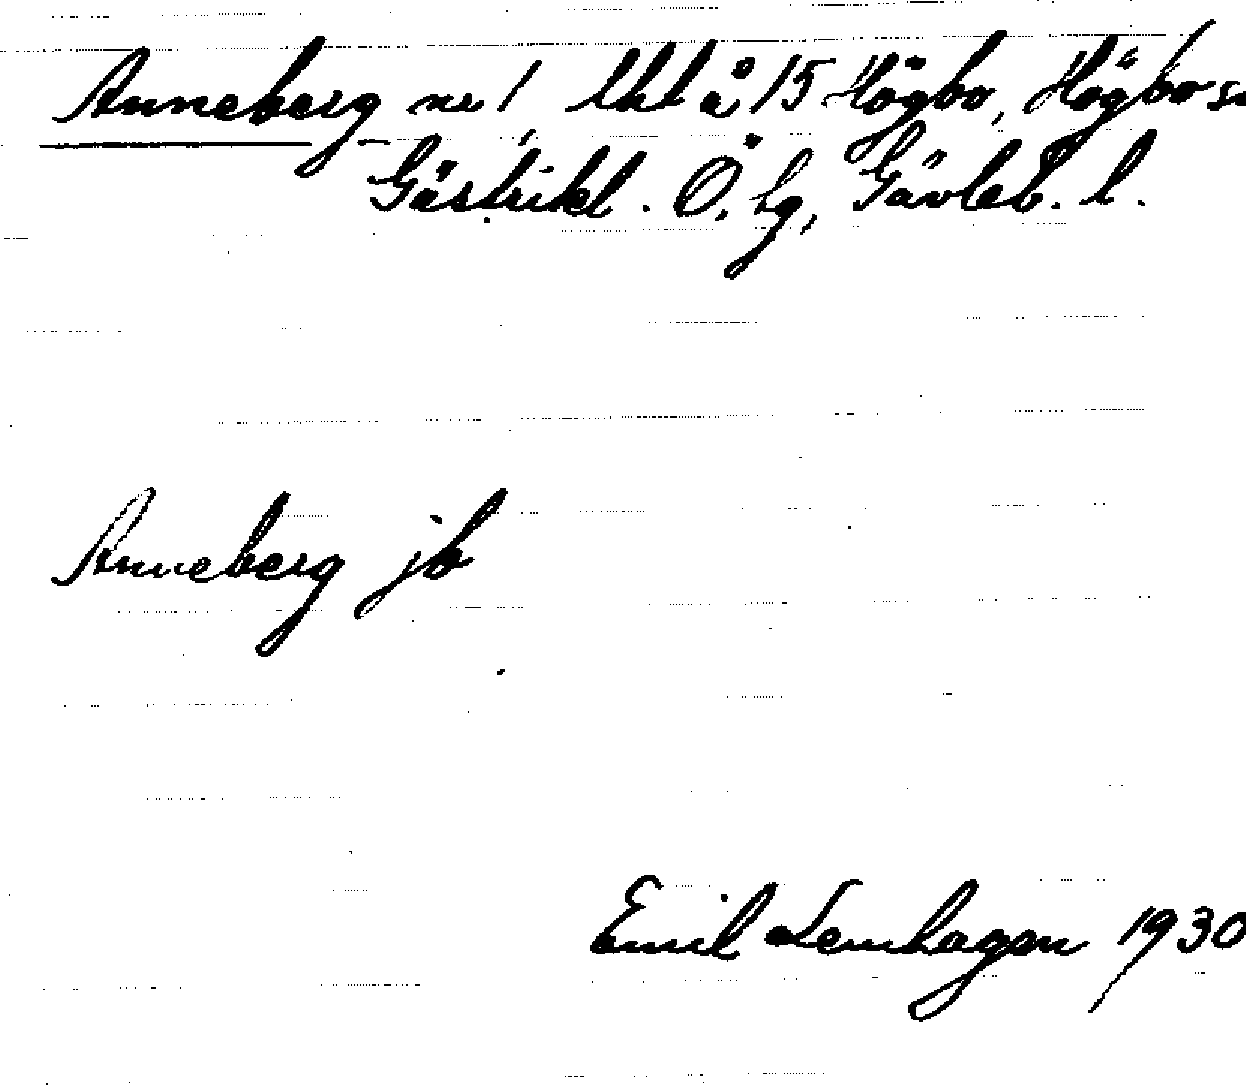 Anneberg nr 1 lht å 15 Högbo, Högbo sn
Gästrikl. Ö. lg, Gävleb. l.
Anneberg jb
Emil Lemhagen 1930